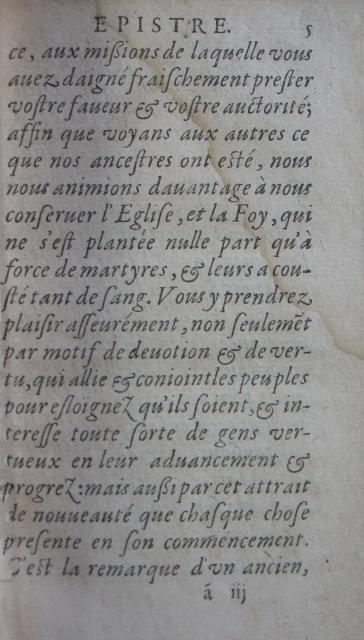 EPISTRE. 5
ce, aux mißions de laquelle vous
auez daigné fraiſchement preſter
voſtre faueur & voſtre auctorité;
affin que voyans aux autres ce
que nos anceſtres ont eſté, nous
nous animions dauantage à nous
conſeruer l'Egliſe, et la Foy, qui
ne s'eſt plantée nulle part qu'à
force de martyres, & leurs a cou-
ſté tant de ſang. Vous y prendrez
plaiſir aſſeurément, non ſeulemẽt
par motif de deuotion & de ver-
tu, qui allie & conioint les peuples
pour eſloignez qu'ils ſoient, & in-
tereſſe toute ſorte de gens ver-
tueux en leur aduancement &
progrez: mais außi par cet attrait
de nouueauté que chaſque choſe
preſente en ſon commencement.
C'eſt la remarque d'vn ancien,
ã iij